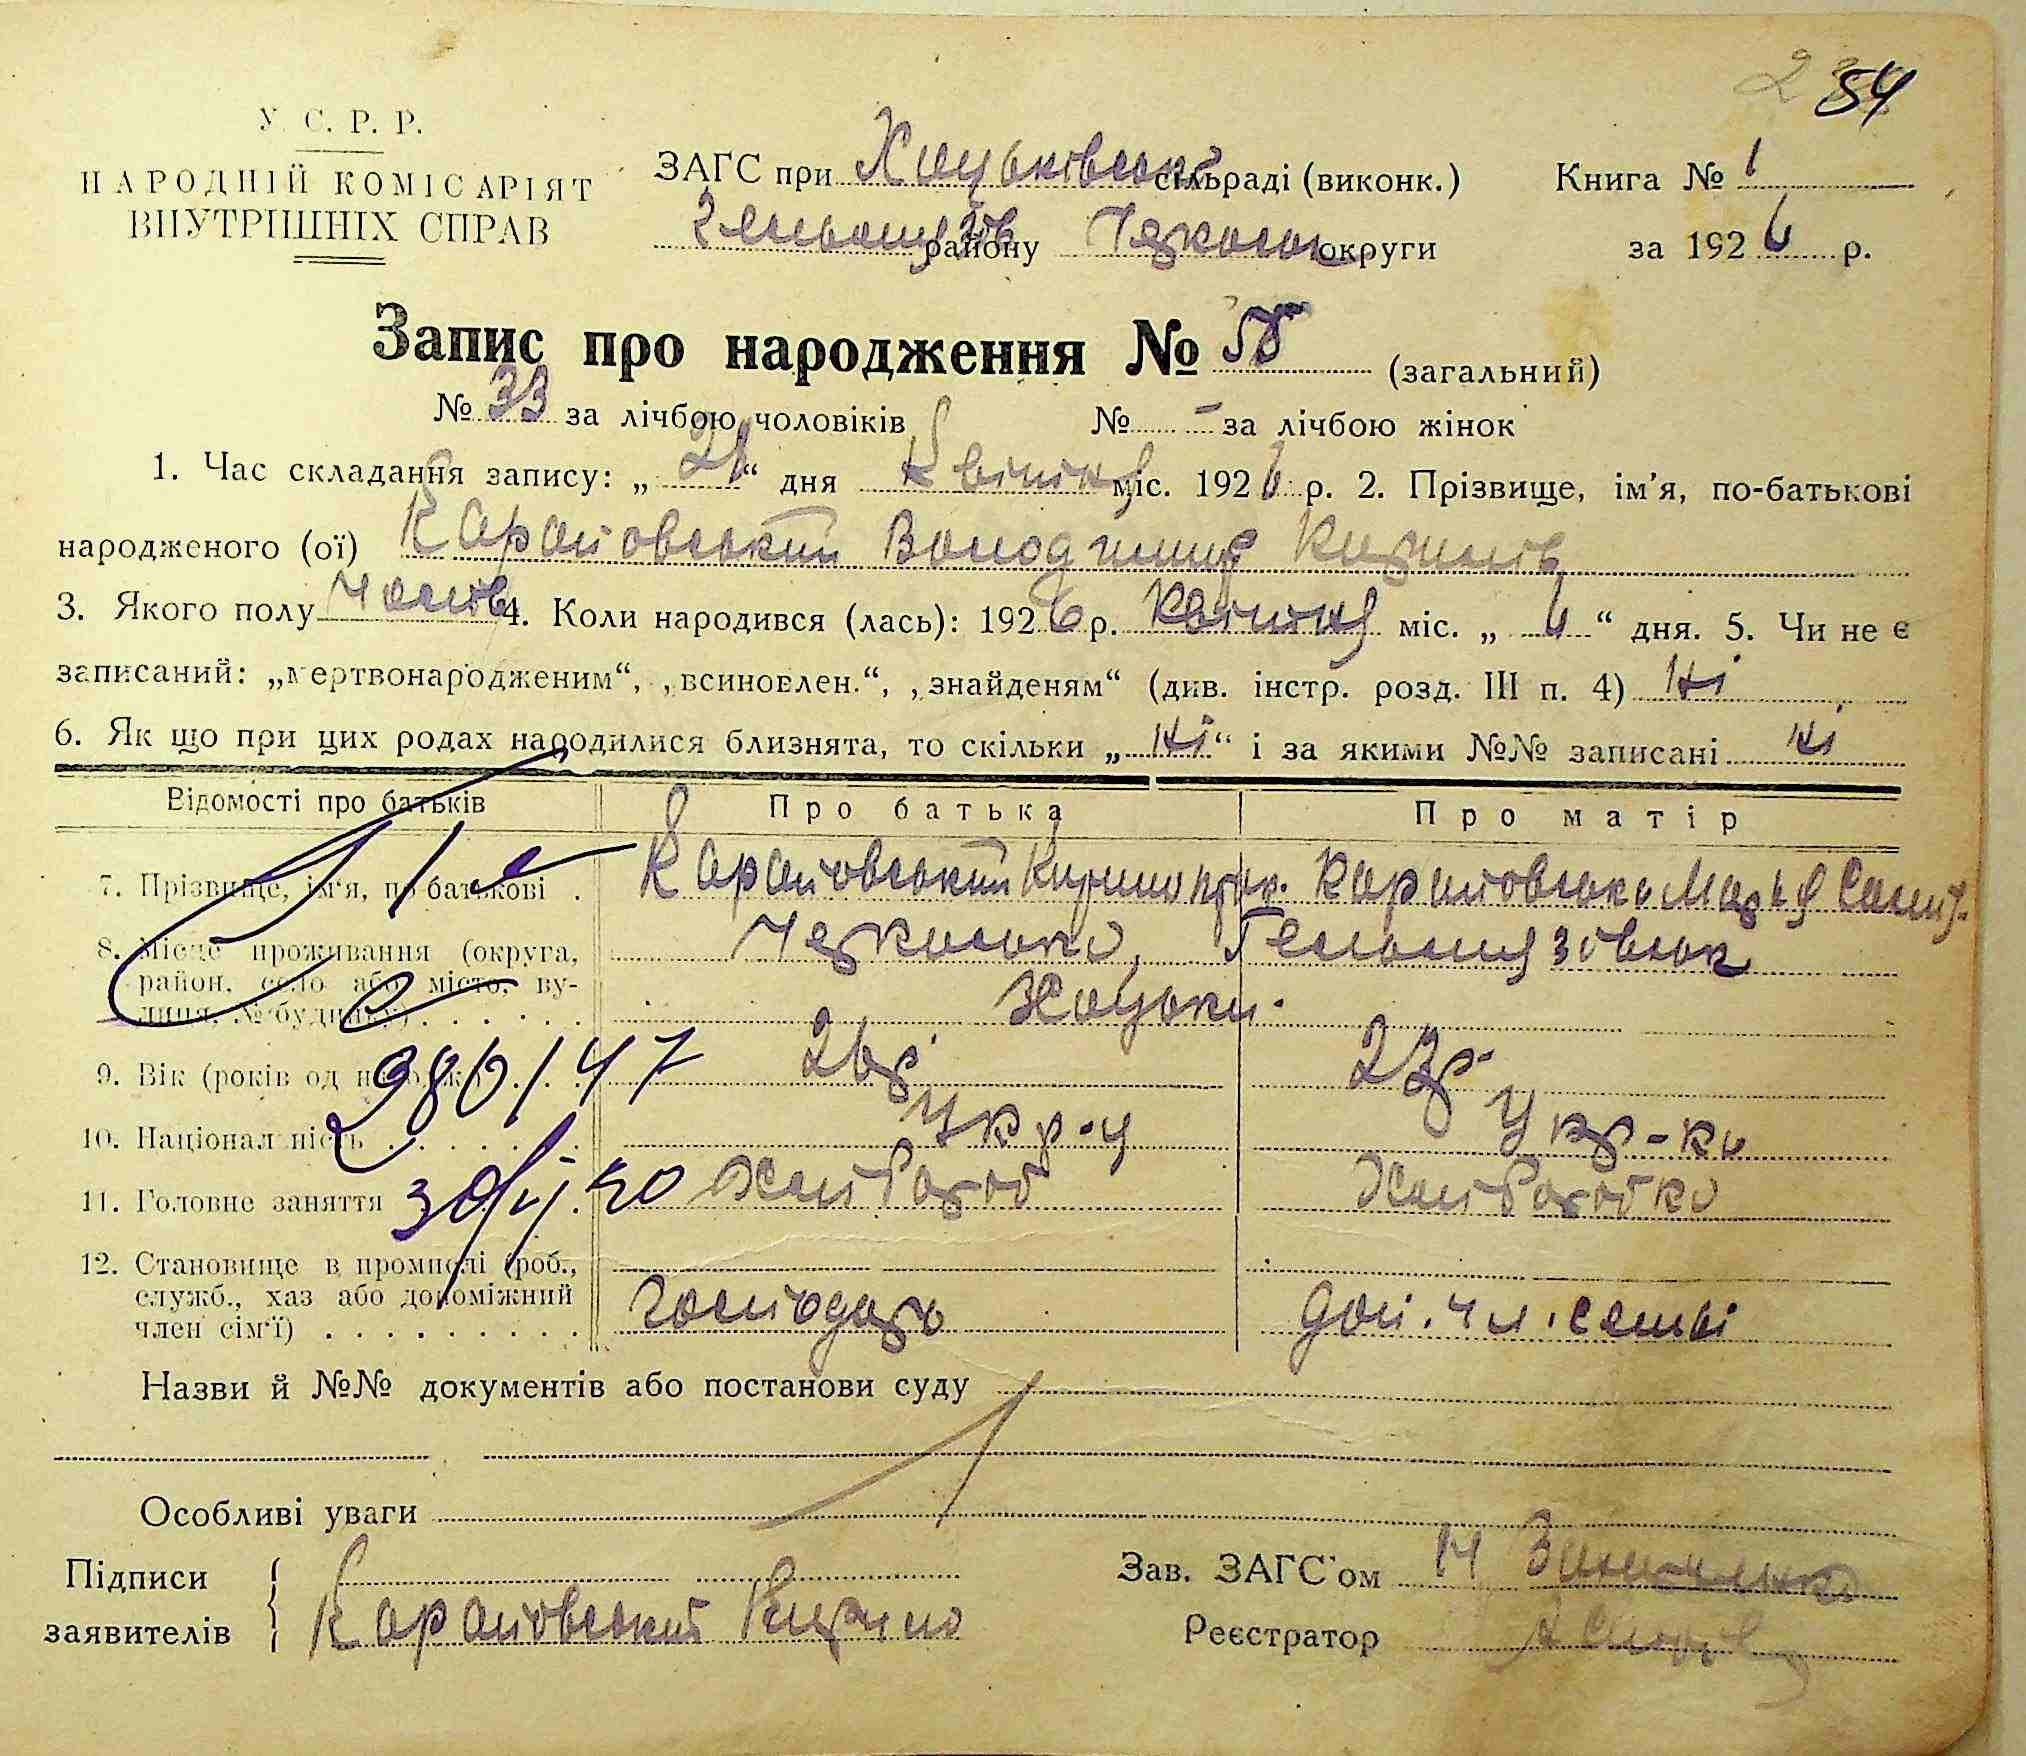 54
У. С. Р. Р.
НАРОДНІЙ КОМІСАРІЯТ
ВНУТРІШНІХ СПРАВ
ЗАГС при Хоцьківськ сільраді (виконк.)
Гельмязів району Черкаськ округи
Книга № 1
за 1926 р.
Запис про народження № (загальний)
№ 33 за лічбою чоловіків № - за лічбою жінок
1. Час складання запису: „ 21 “ дня Квітня міс. 1926 р. 2. Прізвище, ім'я, по-батькові
народженого (ої) Володимир Кирилів
3. Якого полу Чолов 4. Коли народився (лась): 1926 р. Квітня міс. „ 6 “ дня. 5. Чи не є
записаний: „мертвонародженим“, „всиновлен.“, „знайденям“ (див. інстр. розд. III п. 4) Ні
6. Як що при цих родах народилися близнята, то скільки „ Ні “ і за якими №№ записані Ні
Відомості про батьків Про батька Про матір
7. Прізвище, ім'я, по батькові . Кирило Марья
8. Місце проживання (округа, Черкаська, Гельмязівськ
район, село або місто, ву- Хоцьки.
лиця, № будинку) . . . . . .
9. Вік (років од народж.) . . . 26р. 23р.
10. Націонал ність . . . . . . . Укр-ц Укр-ка
11. Головне заняття Хлібороб Хліборобка
12. Становище в промислі (роб.,
служб., хаз або допоміжний Господарь доп. чл. семьі
член сім'ї) . . . . . . . . .
Назви й №№ документів або постанови суду
Особливі уваги
Підписи
заявителів Кирило
Зав. ЗАГС'ом
Реєстратор